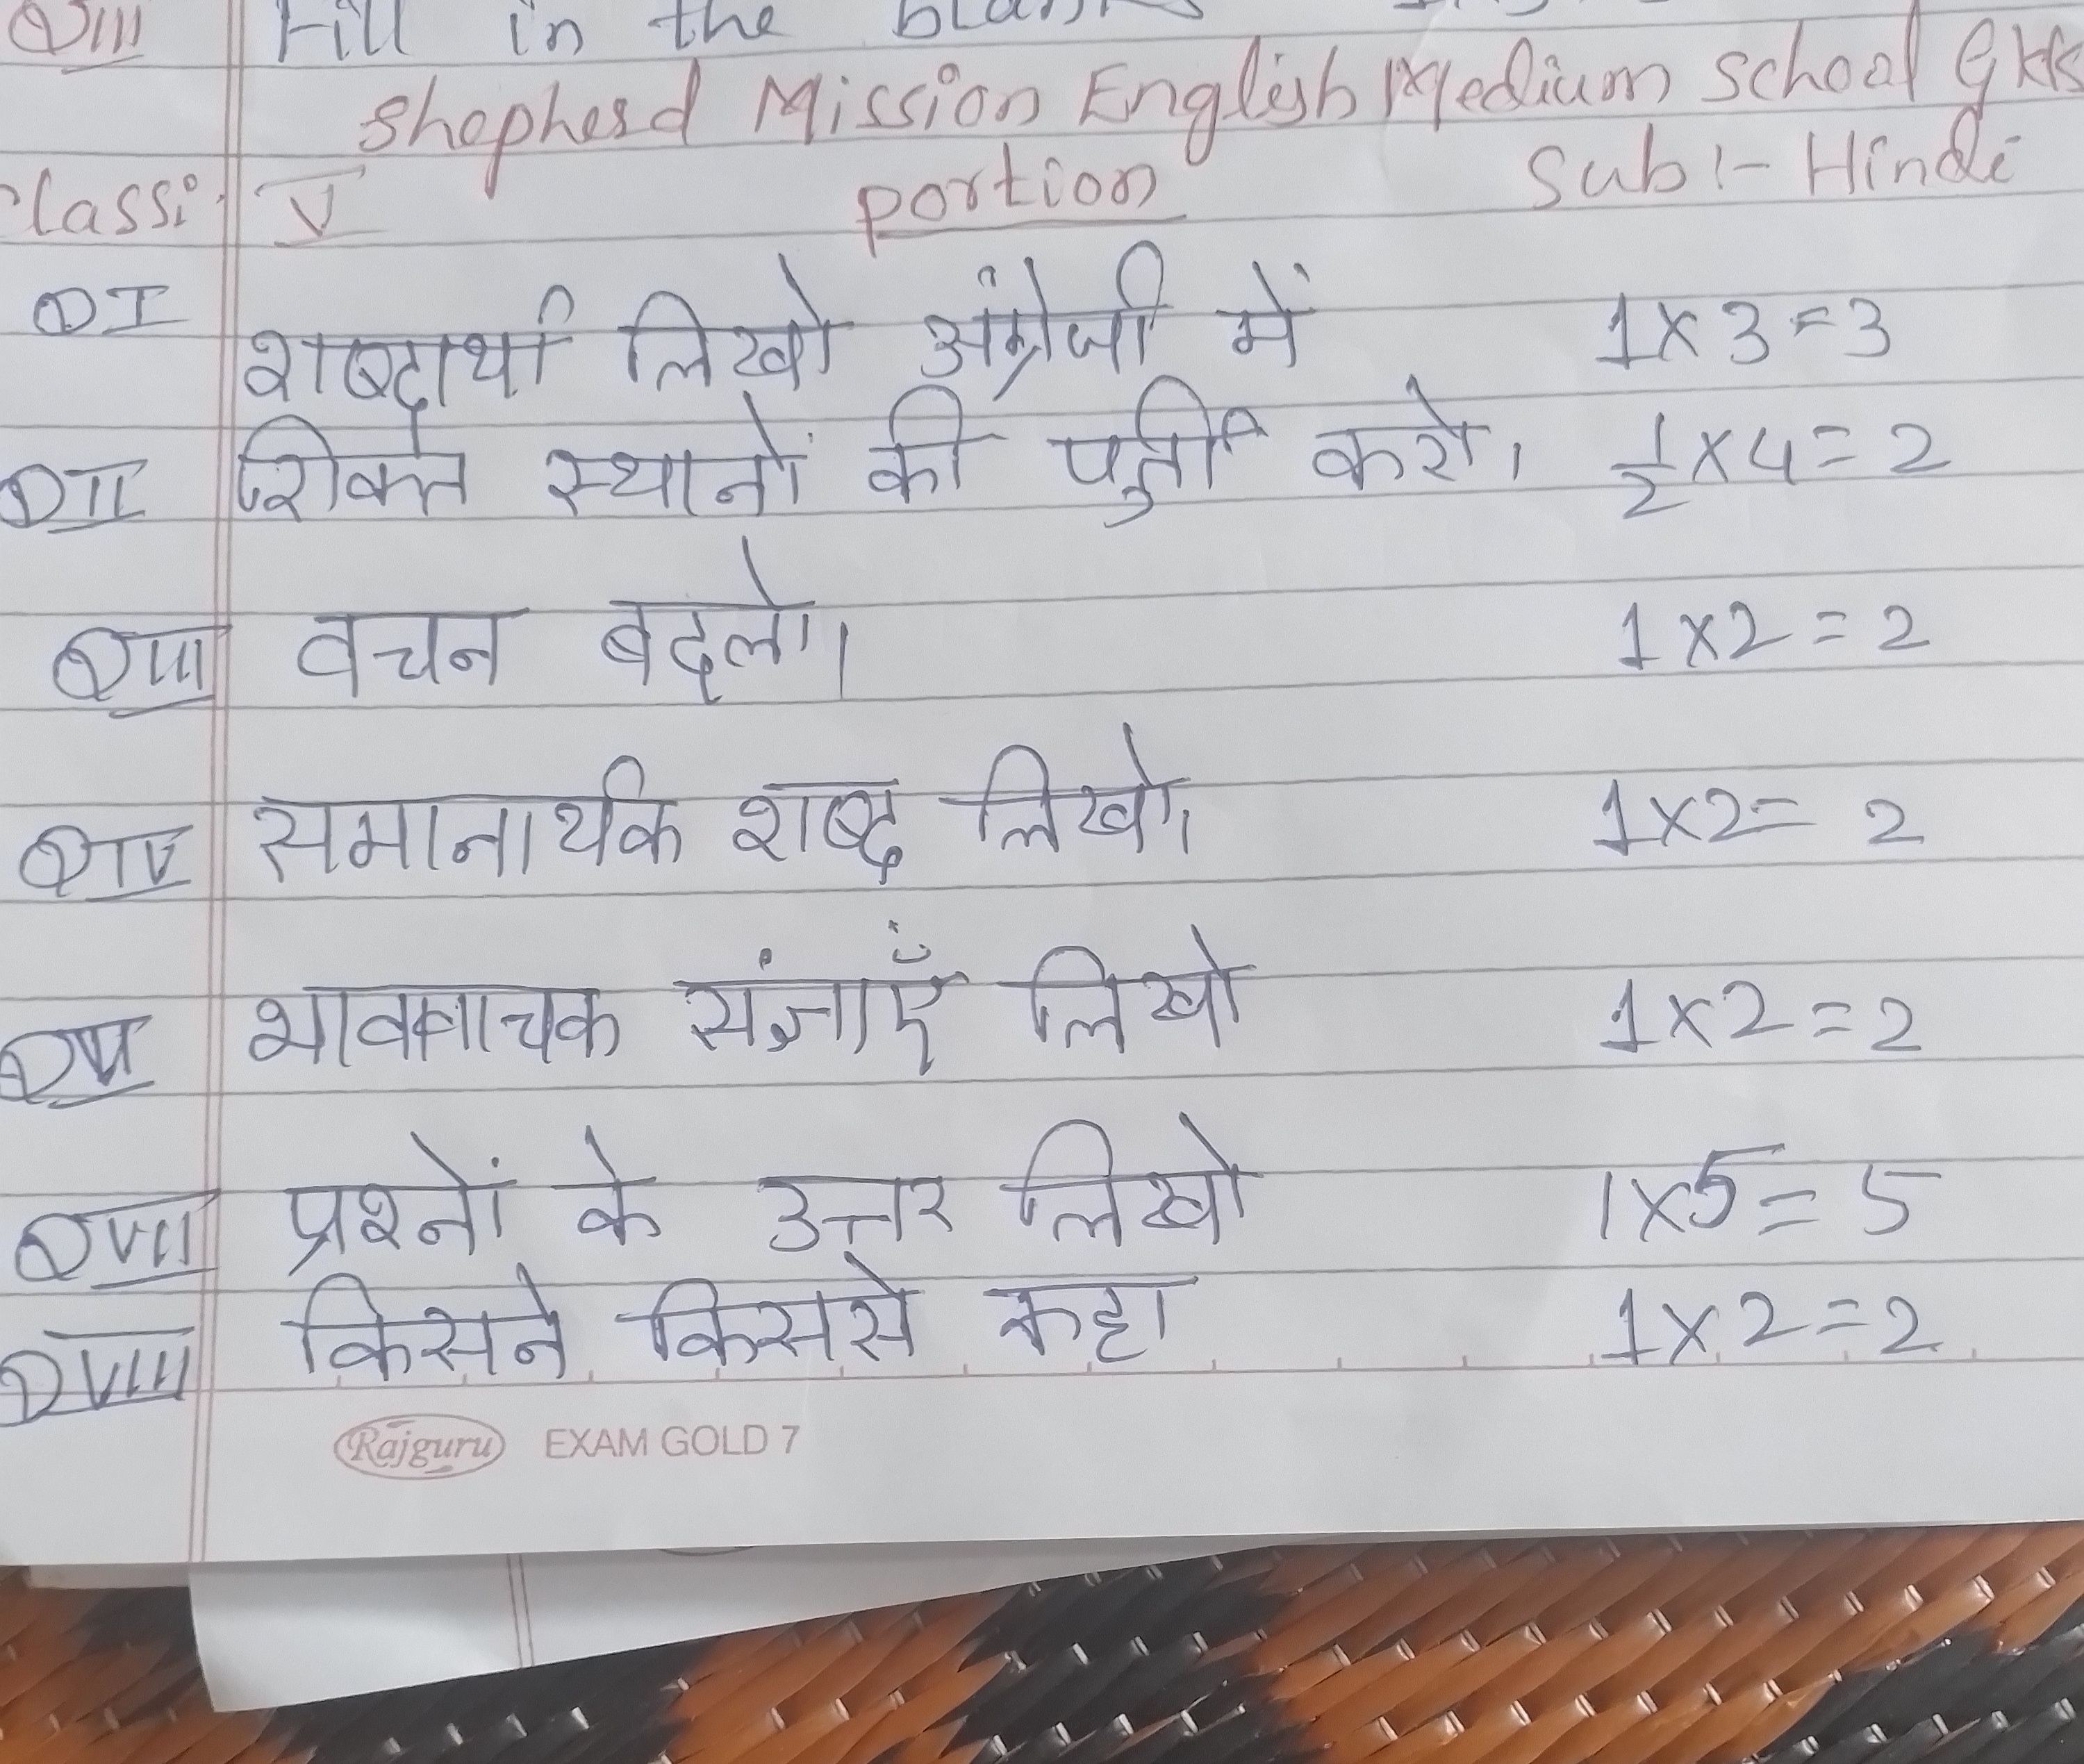 QIII Fill in the
Shepherd Mission English Medium School GKK
Class: V portion Sub:- Hindi
QI शब्दार्थ लिखो अंग्रेजी में 1x3=3
QII रिक्त स्थानों की पुर्ती करो। 1/2x4=2
QIII वचन बदलो। 1x2=2
QIV समानार्थक शब्द लिखो। 1x2=2
QV भाववाचक संज्ञाएँ लिखो 1x2=2
QVII प्रश्नों के उत्तर लिखो 1x5=5
QVIII किसने किससे कहा 1x2=2
Rajguru EXAM GOLD 7